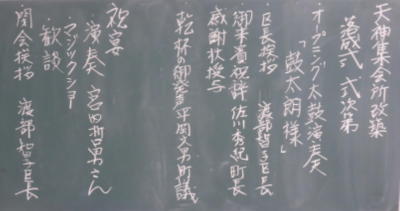 天神集会所改築
落成式 式次第
オープニング太鼓演奏
「鼓太朗様」
区長挨拶 渡部智子区長
御来賓祝辞 佐川秀紀町長
感謝状授与
乾杯の御発声 平岡久男町議
祝宴
演奏 宮田哲男さん
マジックショー
歓談
閉会挨拶 渡部智子区長